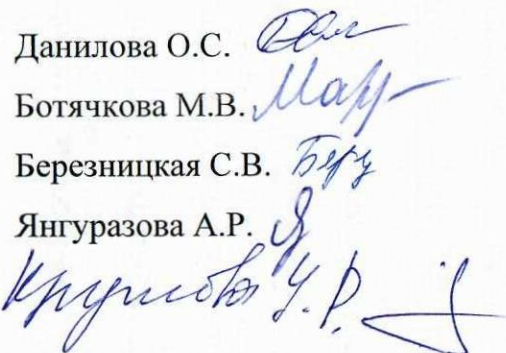 Данилова О.С.
Ботячкова М.В.
Березницкая С.В.
Янгуразова А.Р.
У.Р.